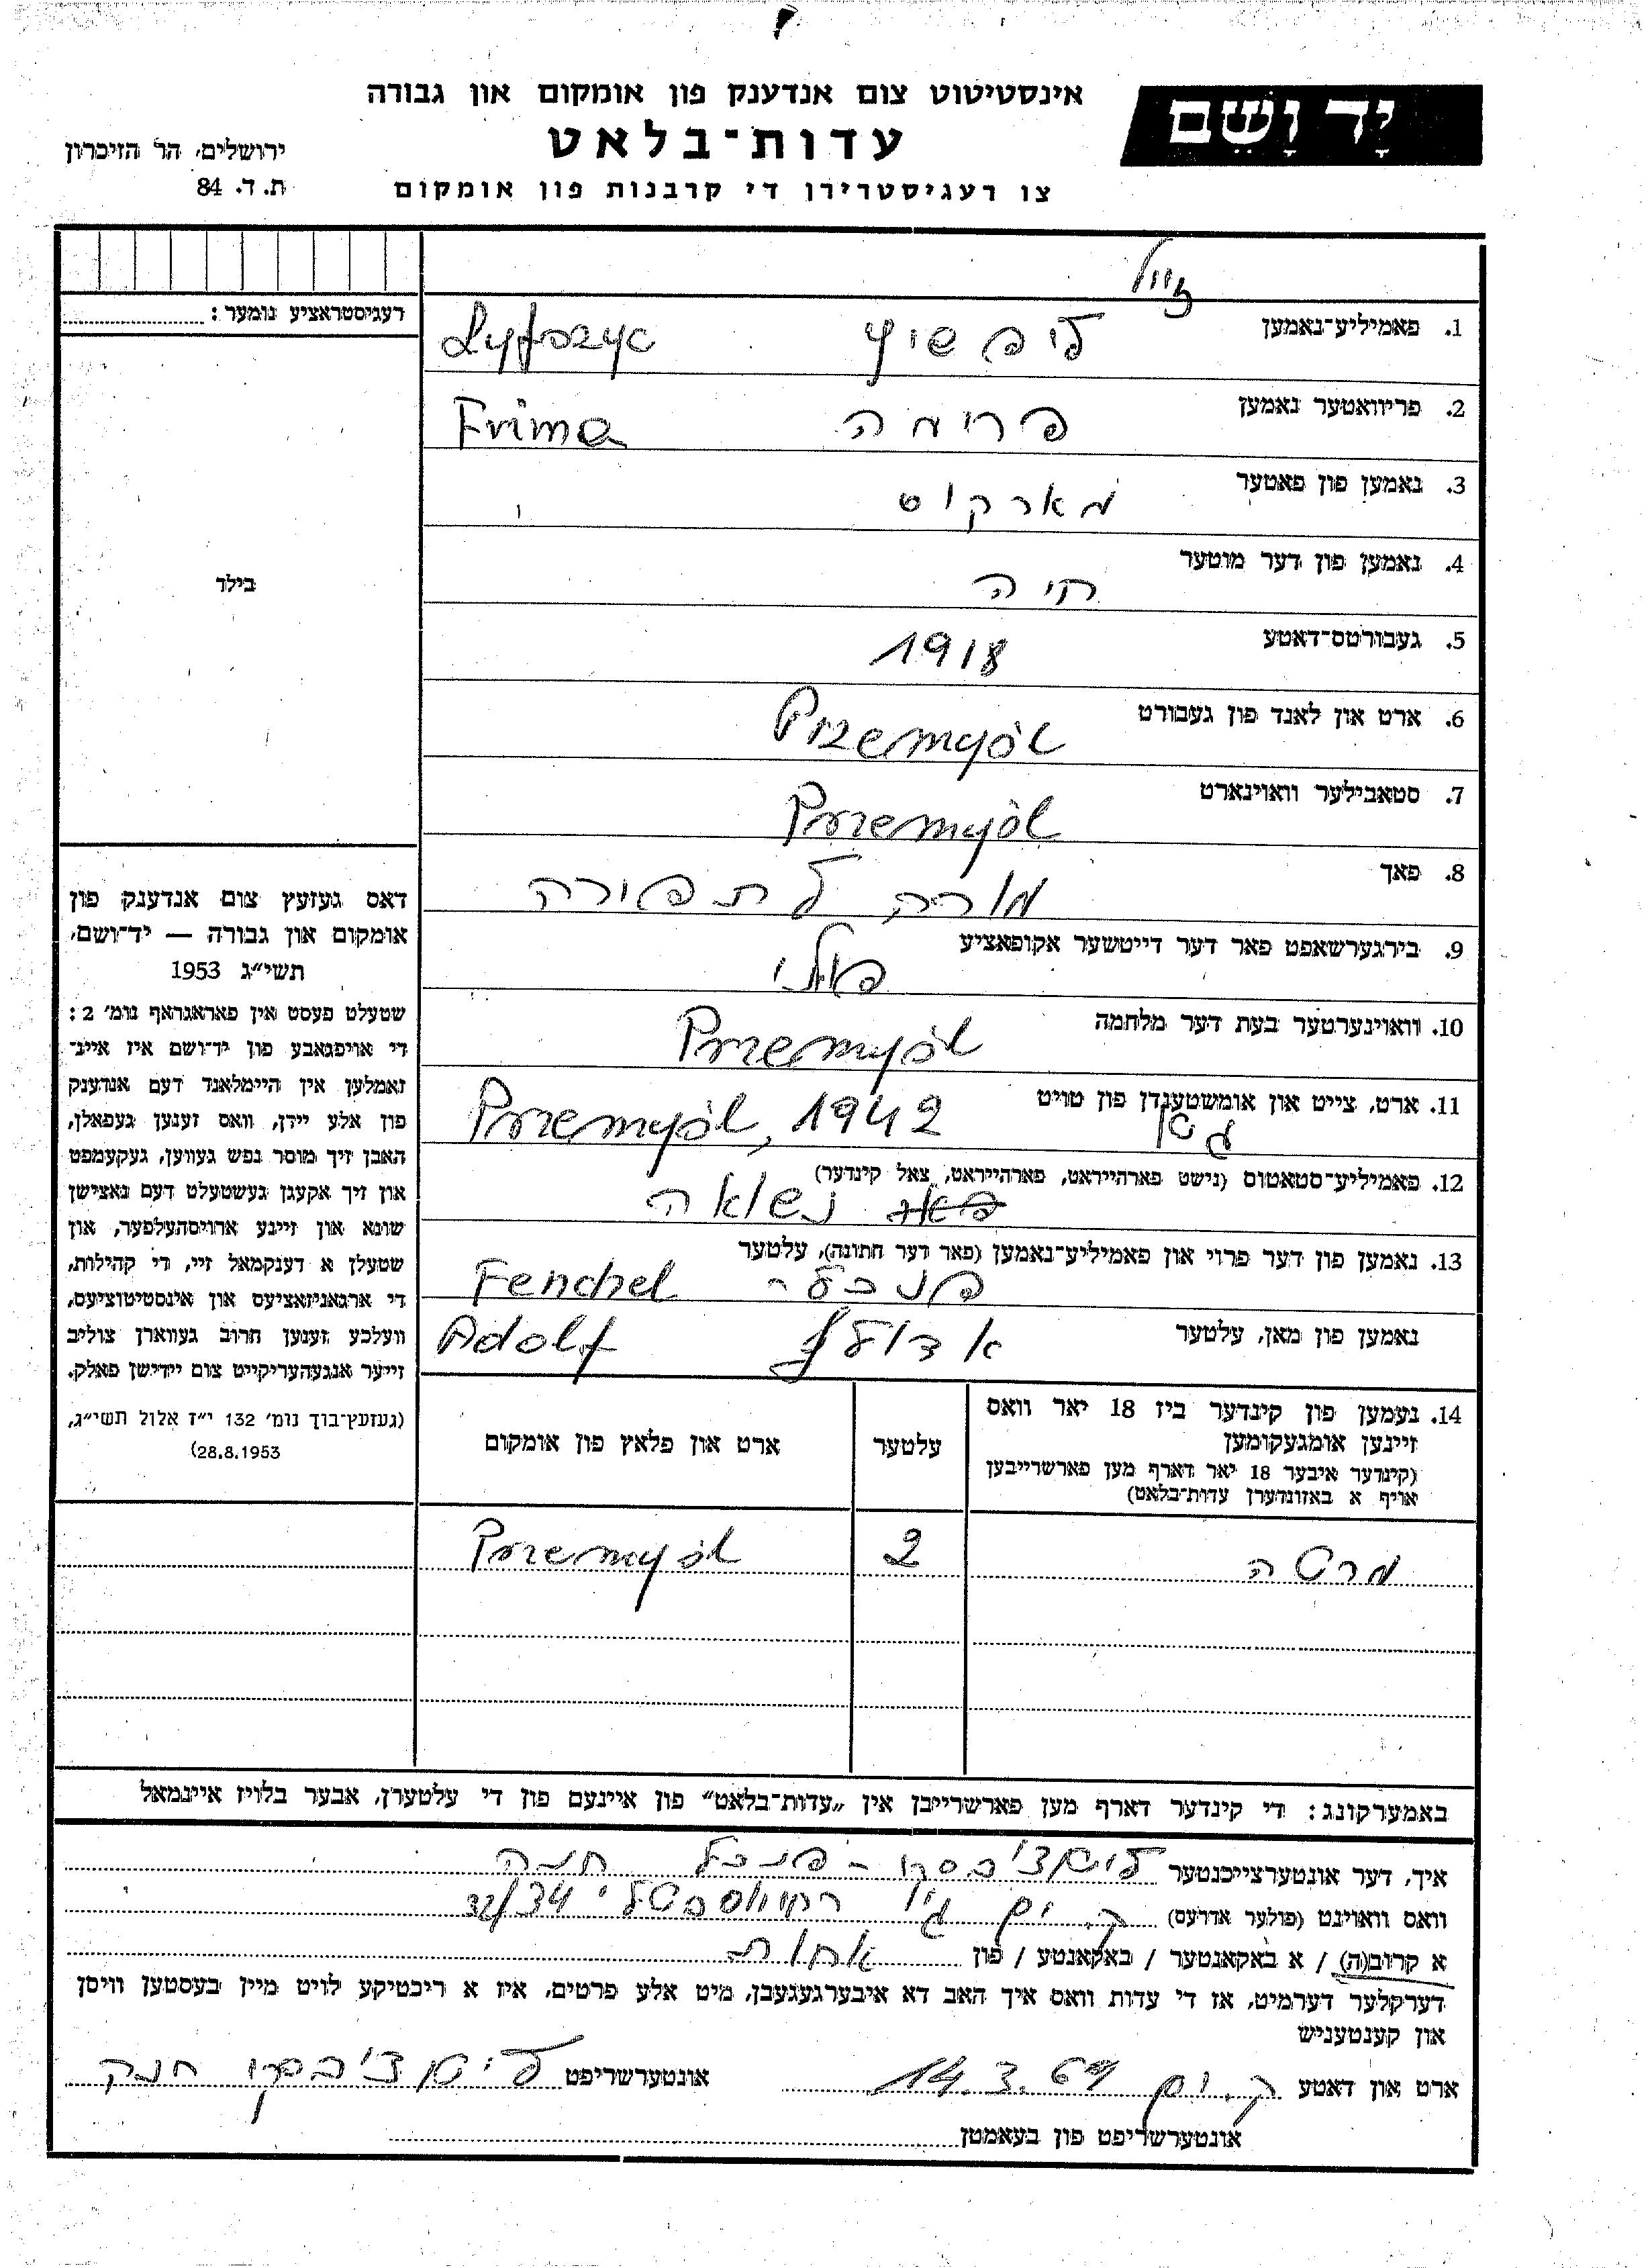 יָד וָשֵׁם
אינסטיטוט צום אנדענק פון אומקום און גבורה
עדות־בלאט
צו רעגיסטרירן די קרבנות פון אומקום
ירושלים, הר הזיכרון
ת. ד. 84
רעגיסטראציע נומער:
בילד
דאס געזעץ צום אנדענק פון
אומקום און גבורה — יד־ושם,
תשי״ג 1953
שטעלט פעסט אין פאראגראף נומ׳ 2:
די אויפגאבע פון יד־ושם איז איינ־
זאמלען אין היימלאנד דעם אנדענק
פון אלע יידן, וואס זענען געפאלן,
האבן זיך מוסר נפש געווען, געקעמפט
און זיך אקעגן געשטעלט דעם נאצישן
שונא און זיינע ארויסהעלפער, און
שטעלן א דענקמאל זיי, די קהילות,
די ארגאניזאציעס און אינסטיטוציעס,
וועלכע זענען חרוב געווארן צוליב
זייער אנגעהעריקייט צום יידישן פאלק.
(געזעץ־בוך נומ׳ 132 י״ז אלול תשי״ג,
28.8.1953)
1. פאמיליע־נאמען ליפשיץ Lyfszyc
2. פריוואטער נאמען פרימה Frima
3. נאמען פון פאטער מארקוס
4. נאמען פון דער מוטער חיה
5. געבורטס־דאטע 1918
6. ארט און לאנד פון געבורט Przemyśl
7. סטאבילער וואוינארט Przemyśl
8. פאך מורה לתפירה
9. בירגערשאפט פאר דער דייטשער אקופאציע פולני
10. וואוינערטער בעת דער מלחמה Przemyśl
11. ארט, צייט און אומשטענדן פון טויט Przemyśl, 1942
12. פאמיליע־סטאטוס (נישט פארהייראט, פארהייראט, צאל קינדער)
נשואה
13. נאמען פון דער פרוי און פאמיליע־נאמען (פאר דער חתונה), עלטער
פנכל Fenchel
נאמען פון מאן, עלטער אדולף Adolf
14. נעמען פון קינדער ביז 18 יאר וואס
זיינען אומגעקומען
(קינדער איבער 18 יאר דארף מען פארשרייבן
אויף א באזונדערן עדות־בלאט)
עלטער
ארט און פלאץ פון אומקום
מרטה 2 Przemyśl
באמערקונג: די קינדער דארף מען פארשרייבן אין „עדות־בלאט״ פון איינעם פון די עלטערן, אבער בלויז איינמאל
איך, דער אונטערצייכנטער פנכל חנה
וואס וואוינט (פולער אדרעס) ק. ים 32/34
א קרוב(ה) / א באקאנטער / באקאנטע / פון אחות
דערקלער דערמיט, אז די עדות וואס איך האב דא איבערגעגעבן, מיט אלע פרטים, איז א ריכטיקע לויט מיין בעסטען וויסן
און קענטעניש
ארט און דאטע ק. ים 14.3.69 אונטערשריפט
אונטערשריפט פון בעאמטן